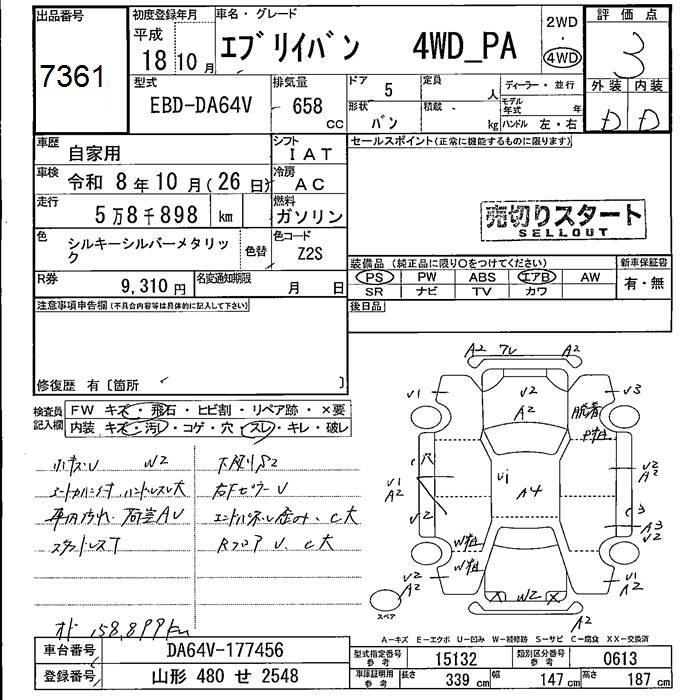 出品番号
7361
初度登録年月
平成
18年10月
車名・グレード
エブリイバン 4WD_PA
2WD
・
4WD
評価点
3
外装 内装
D D
型式
EBD-DA64V
排気量
658
CC
ドア
5
形状
バン
定員
人
積載
kg
ディーラー・並行
モデル年式 年
ハンドル 左・右
車歴
自家用
シフト
IAT
車検
令和 8年10月(26日)
冷房
AC
走行
5万8千898 km
燃料
ガソリン
色
シルキーシルバーメタリック
色替
色コード
Z2S
R券
9,310円
名変通知期限
月 日
セールスポイント(正常に機能するものに限ります)
売切りスタート
SELLOUT
装備品(純正品に限り○をつけてください)
新車保証書
PS PW ABS エアB AW
SR ナビ TV カワ
有・無
後日品
注意事項申告欄(不具合内容等は具体的に記入して下さい)
修復歴 有〔箇所 〕
検査員記入欄
FW キズ・飛石・ヒビ割・リペア跡・×要
内装 キズ・汚レ・コゲ・穴・スレ・キレ・破レ
W2
スタッドレス
荷室AU
オド 158,899km
A2 A2
V1 V2 V3
A2
脱着
V1
A2
穴
V2
A4
V2
A2
C3
A3
V2
V2
A2
W2
V1
A2
A2
スペア
A-キズ E-エクボ U-凹み W-補修跡 S-サビ C-腐食 XX-交換済
車台番号
DA64V-177456
登録番号
山形 480 せ 2548
型式指定番号
参考
15132
類別区分番号
参考
0613
車庫証明用
参考
長さ 339 cm 幅 147 cm 高さ 187 cm